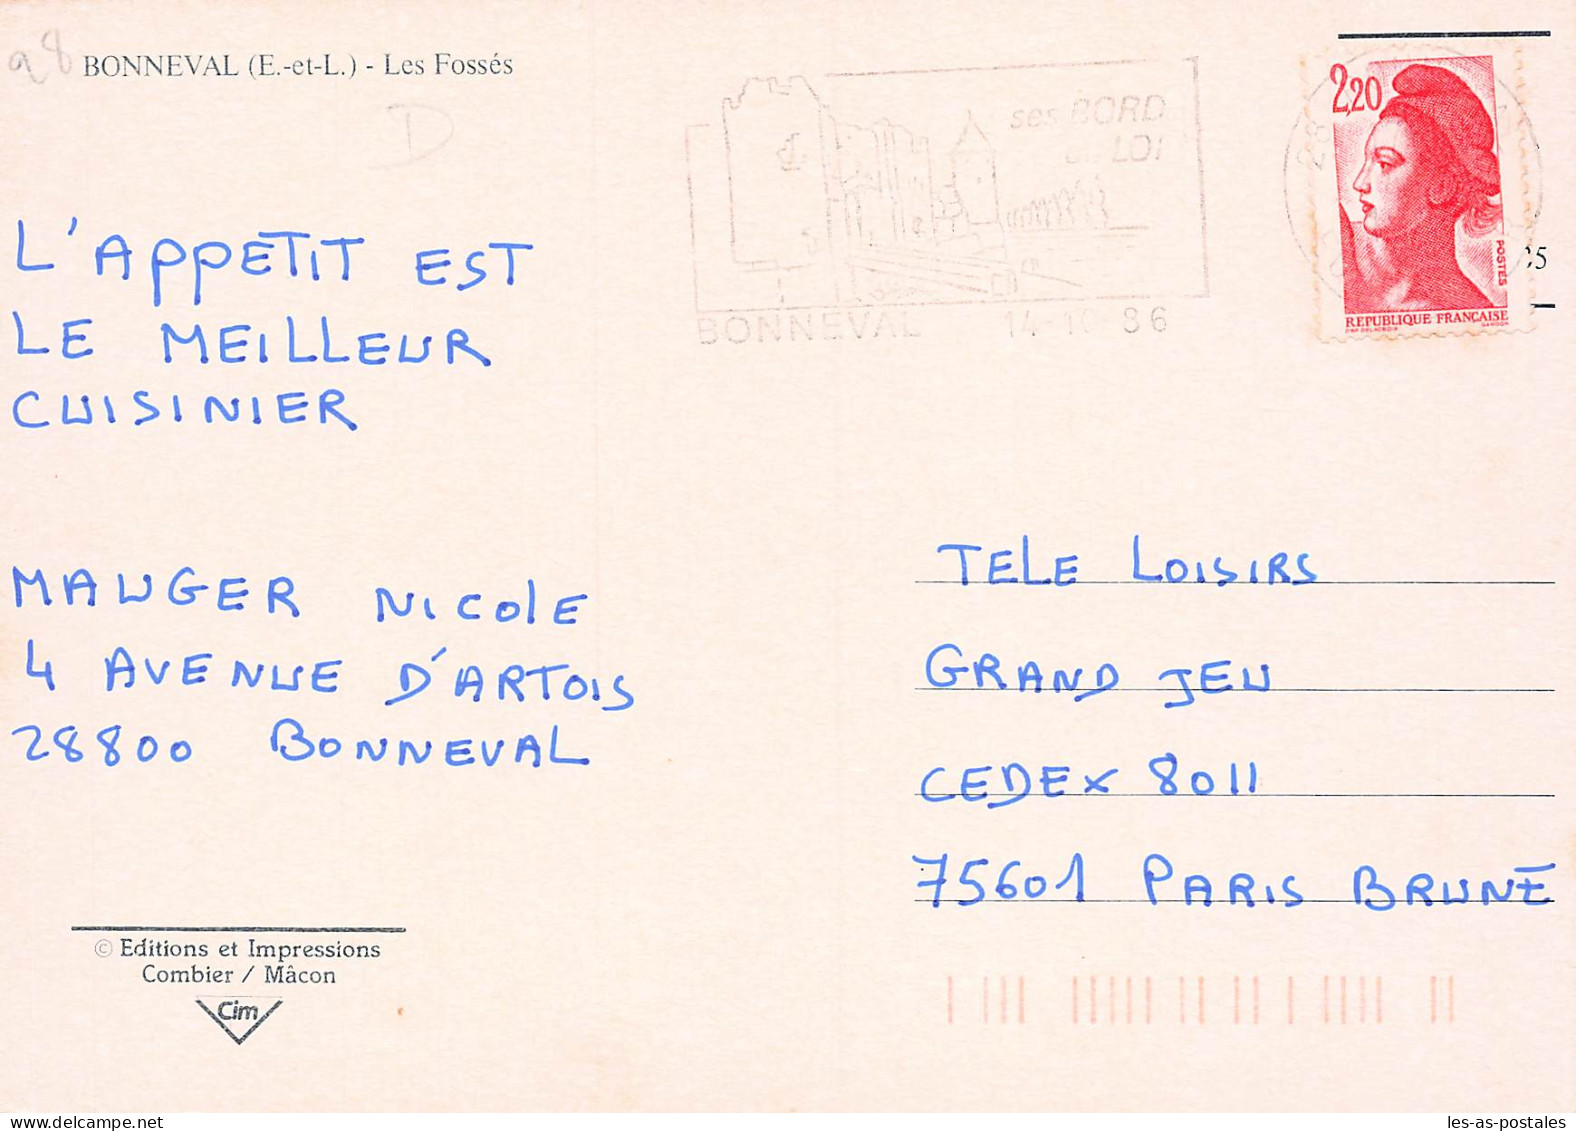 98
BONNEVAL (E.-et-L.) - Les Fossés
D
ses BORD
LOI
BONNEVAL 14-10 86
28
2,20
POSTES
REPUBLIQUE FRANÇAISE
L'APPETIT EST
LE MEILLEUR
CUISINIER
MAUGER NICOLE
4 AVENUE D'ARTOIS
28800 BONNEVAL
TELE LOISIRS
GRAND JEU
CEDEX 8011
75601 PARIS BRUNE
© Editions et Impressions
Combier / Mâcon
Cim
les-as-postales